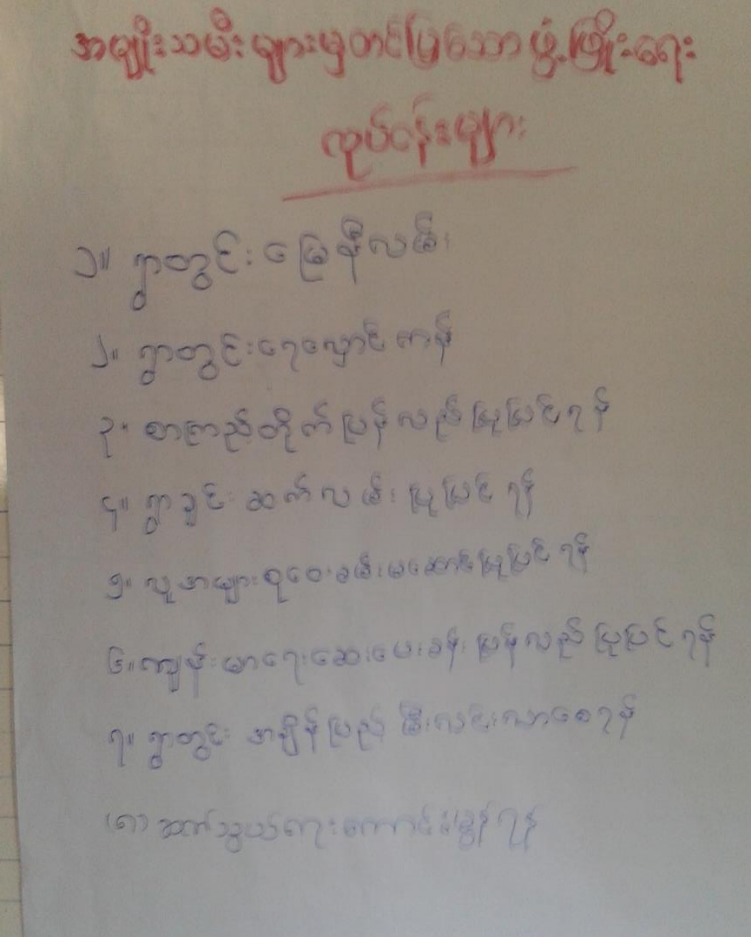 အမျိုးသမီးများမှတင်ပြသောဖွံ့ဖြိုးရေး
လုပ်ငန်းများ
၁။ ရွာတွင်းမြေနီလမ်း
၂။ ရွာတွင်းရေလှောင်ကန်
၃။ စာကြည့်တိုက်ပြန်လည်ပြုပြင်ရန်
၄။ ရွာချင်းဆက်လမ်းပြုပြင်ရန်
၅။ လူအများစုဝေးခမ်းမဆောင်ပြုပြင်ရန်
၆။ ကျန်းမာရေးဆေးပေးခန်းပြန်လည်ပြုပြင်ရန်
၇။ ရွာတွင်းအချိန်ပြည့်မီးလင်းလာစေရန်
(၈) ဆက်သွယ်ရေးကောင်းမွန်ရန်